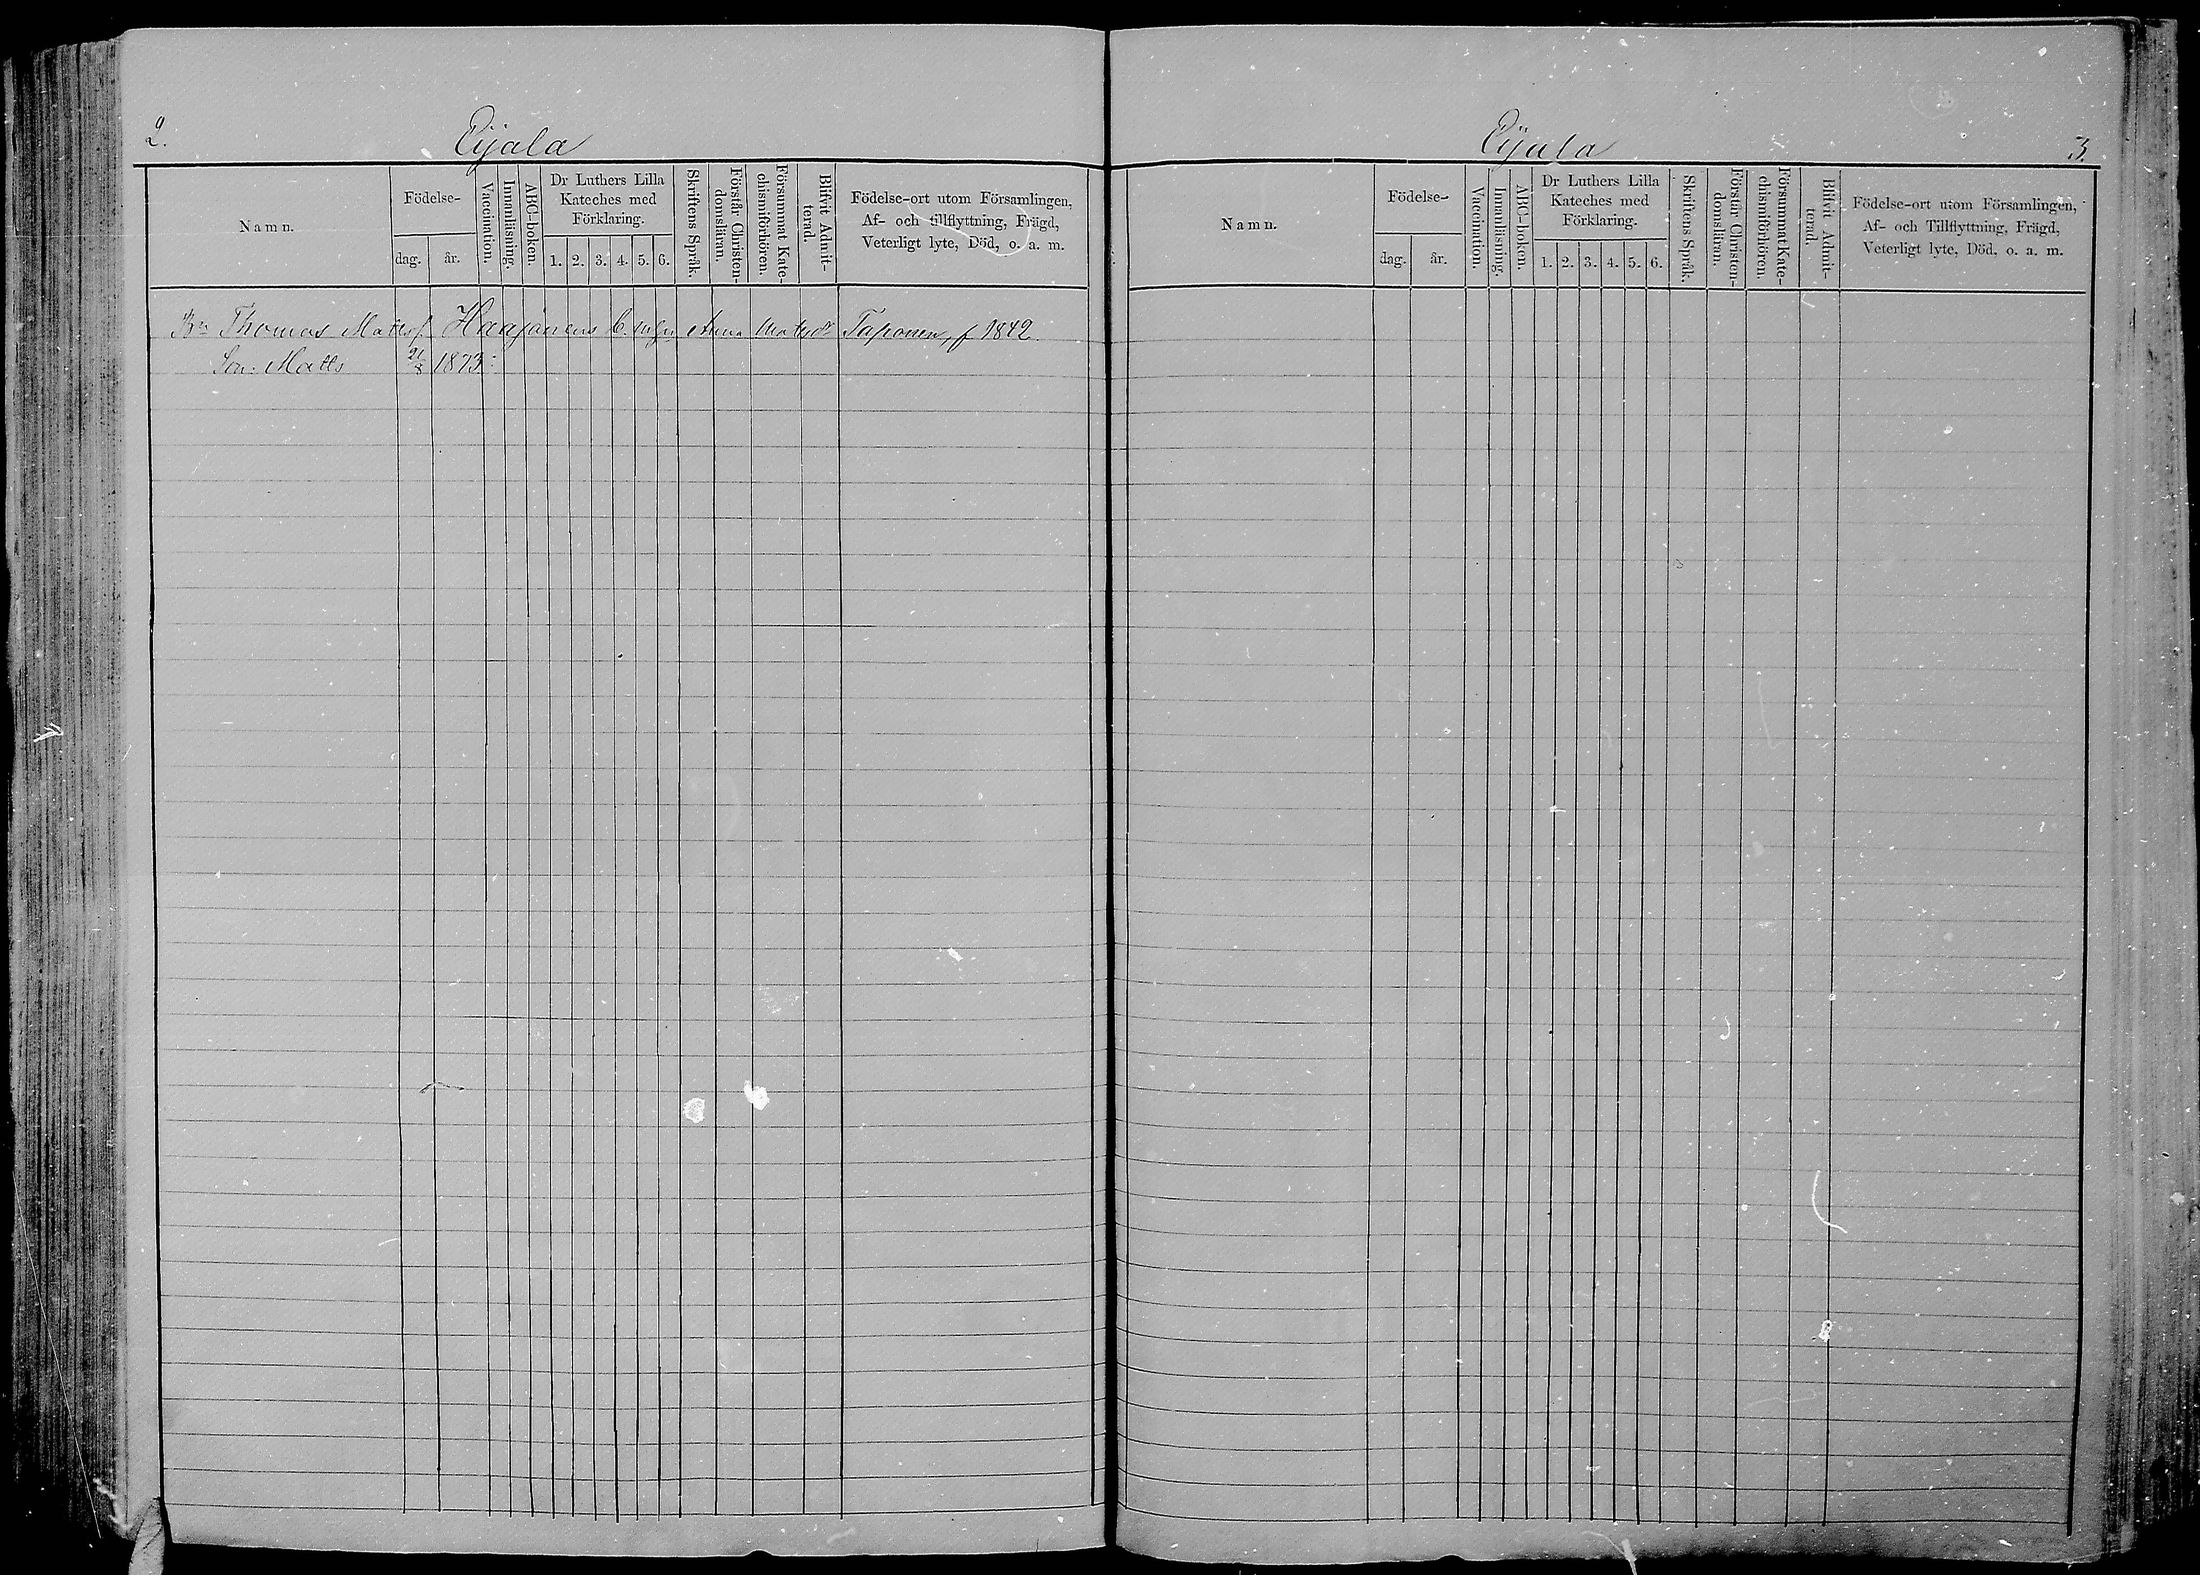 2.
Eijala
Namn.
Födelse-
dag.
år.
Vaccination.
Innanläsning.
ABC-boken.
Dr Luthers Lilla
Kateches med
Förklaring.
1. 2. 3. 4. 5. 6.
Skriftens Språk.
Förstår Christen-
domsläran.
Försummat Kate-
chismiförhören.
Blifvit Admit-
terad.
Födelse-ort utom Församlingen,
Af- och tillflyttning, Frägd,
Veterligt lyte, Död, o. a. m.
Thomas Matts. Haajanens Anna Taponen, f 1842.
Son: Matts 21/8 1873.
Eijala
3.
Namn.
Födelse-
dag.
år.
Vaccination.
Innanläsning.
ABC-boken.
Dr Luthers Lilla
Kateches med
Förklaring.
1. 2. 3. 4. 5. 6.
Skriftens Språk.
Förstår Christen-
domsläran.
Försummat Kate-
chismiförhören.
Blifvit Admit-
terad.
Födelse-ort utom Församlingen,
Af- och Tillflyttning, Frägd,
Veterligt lyte, Död, o. a. m.